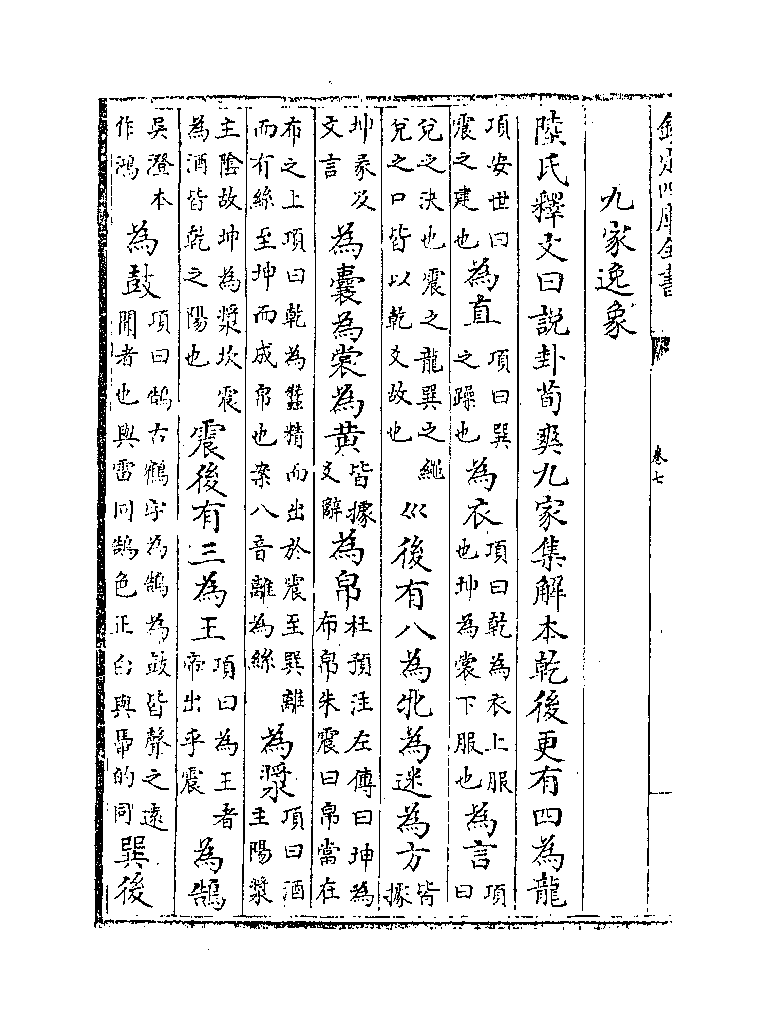 欽定四庫全書 卷七
九家逸象
陸氏釋文曰說卦荀爽九家集解本乾後更有四為龍
項安世曰震之建也為直項曰巽之躁也為衣項曰乾為衣上服也坤為裳下服也為言項曰
兌之決也震之龍巽之繩兌之口皆以乾爻故也巛後有八為牝為迷為方皆據
坤彖及文言為囊為裳為黃皆據文辭為帛杜預注左傳曰坤為布帛朱震曰帛當在
布之上項曰乾為蠶精而出於震至巽離而有絲至坤而成帛也案八音離為絲為漿項曰酒主陽漿
主陰故坤為漿坎震為酒皆乾之陽也震後有三為王項曰為王者帝出乎震為鵠
吳澄本作鴻為鼓項曰鵠古鶴字為鵠為鼓皆聲之遠聞者也與雷同鵠色正白與馵的同巽後